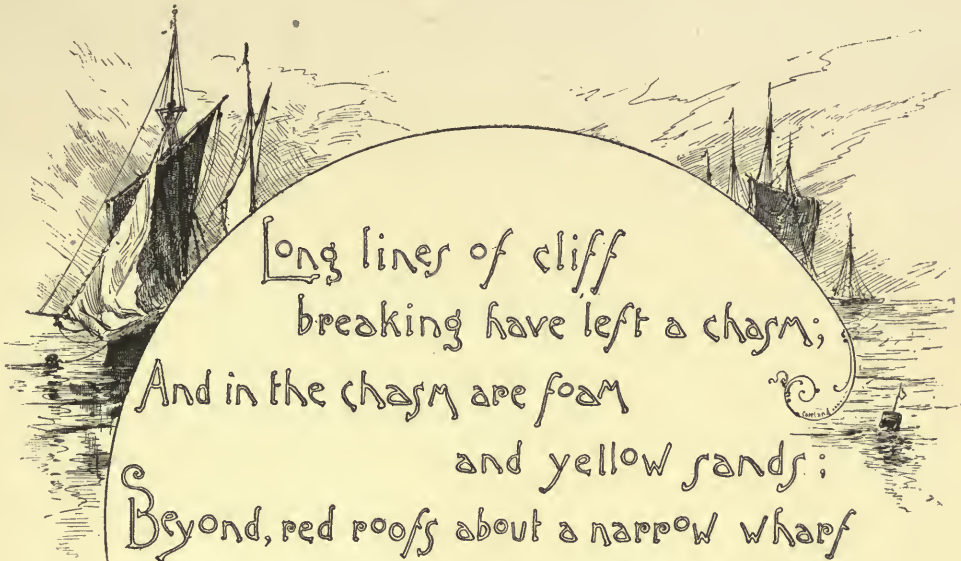 Long lines of cliff
breaking have left a chasm;
And in the chasm are foam
and yellow sands:
Beyond, red roofs about a narrow wharf